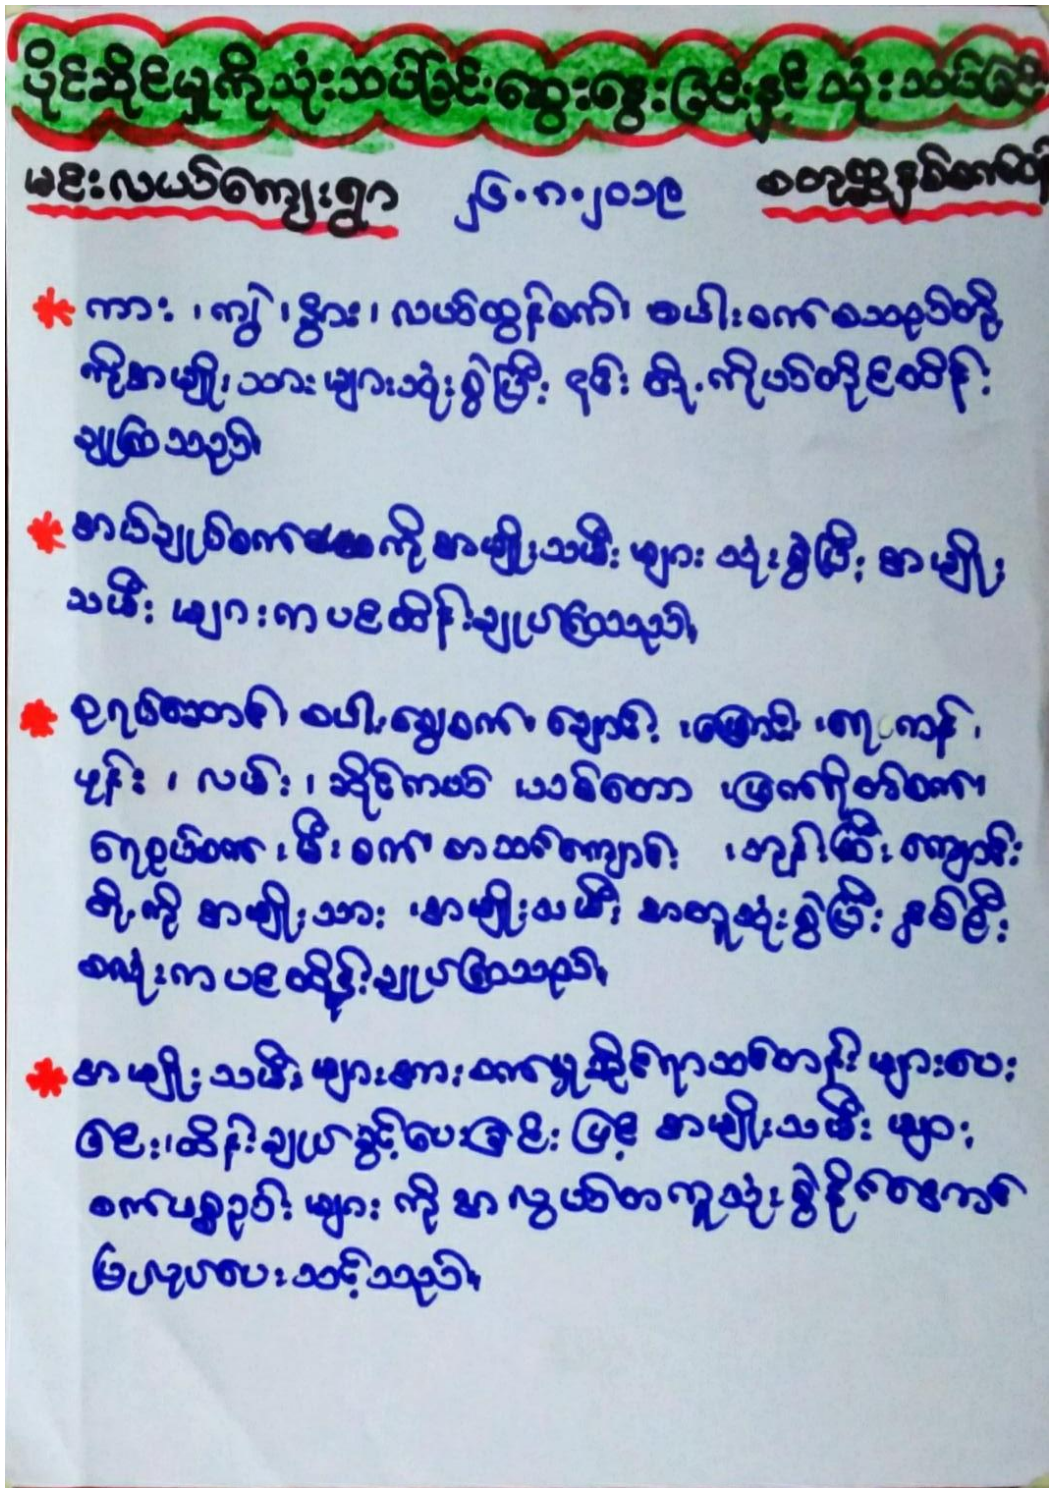 ပိုင်ဆိုင်မှုကိုသုံးသပ်ခြင်းဆွေးနွေးခြင်းနှင့်သုံးသပ်ခြင်း
မင်းလယ်ကျေးရွာ ၂၆.၈.၂၀၁၉
* ကား ၊ ကျွဲ ၊ နွား ၊ လယ်ထွန်စက်၊ စပါး စက် စသည်တို့
ကိုအမျိုးသားများသုံးစွဲပြီး ၎င်း တို့ ကိုယ်တိုင်ထိန်း
ချုပ်ကြသည်။
* အပ်ချုပ်စက် ကို အမျိုးသမီး များ သုံးစွဲပြီး အမျိုး
သမီး များ က ပင် ထိန်းချုပ်ကြသည်။
* စပါးချွေစက်၊ ချောင်း ၊ မြောင်း ၊ ရေ ကန် ၊
ဖုန်း ၊ လမ်း ၊ ဆိုင်ကယ် ၊ သစ်တော ၊ မြက်ရိတ်စက်၊
ရေစုပ်စက် ၊ မီး စက် စာသင်ကျောင်း ၊ ဘုန်းကြီးကျောင်း
တို့ ကို အမျိုးသား ၊ အမျိုးသမီး အတူသုံးစွဲပြီး နှစ်ဦး
စလုံးက ပင် ထိန်းချုပ်ကြသည်။
* အမျိုးသမီး များအား စက်မှုဆိုင်ရာသင်တန်း များပေး
ခြင်း၊ထိန်းချုပ် ခွင့်ပေးခြင်း ဖြင့် အမျိုးသမီး များ
စက်ပစ္စည်း များ ကို အလွယ်တကူသုံးစွဲနိုင်အောင်
ပြုလုပ်ပေးသင့်သည်။